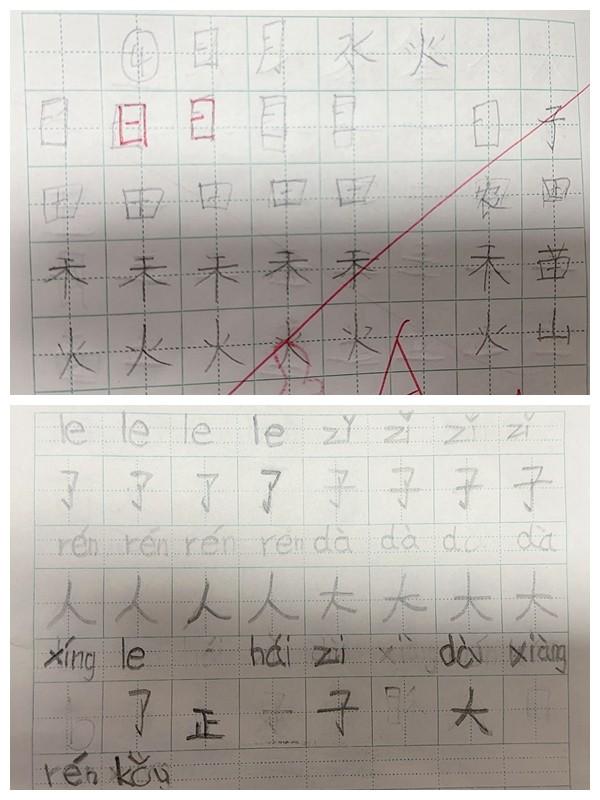 ④ 目 月 水 火
目 日 日 目 目 日 子
田 田 田 田 田 农 田
禾 禾 禾 禾 禾 禾 苗
火 火 火 火 火 火 山
le le le le zǐ zǐ zǐ zǐ
了 了 了 了 子 子 子 子
rén rén rén rén dà dà dà dà
人 人 人 人 大 大 大 大
xíng le hái zi dà xiàng
了 正 子 子 大
rén kǒu